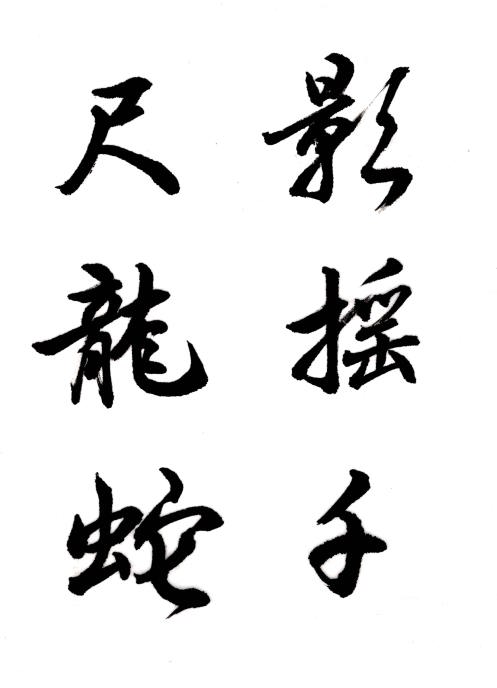 影摇千
尺龍蛇